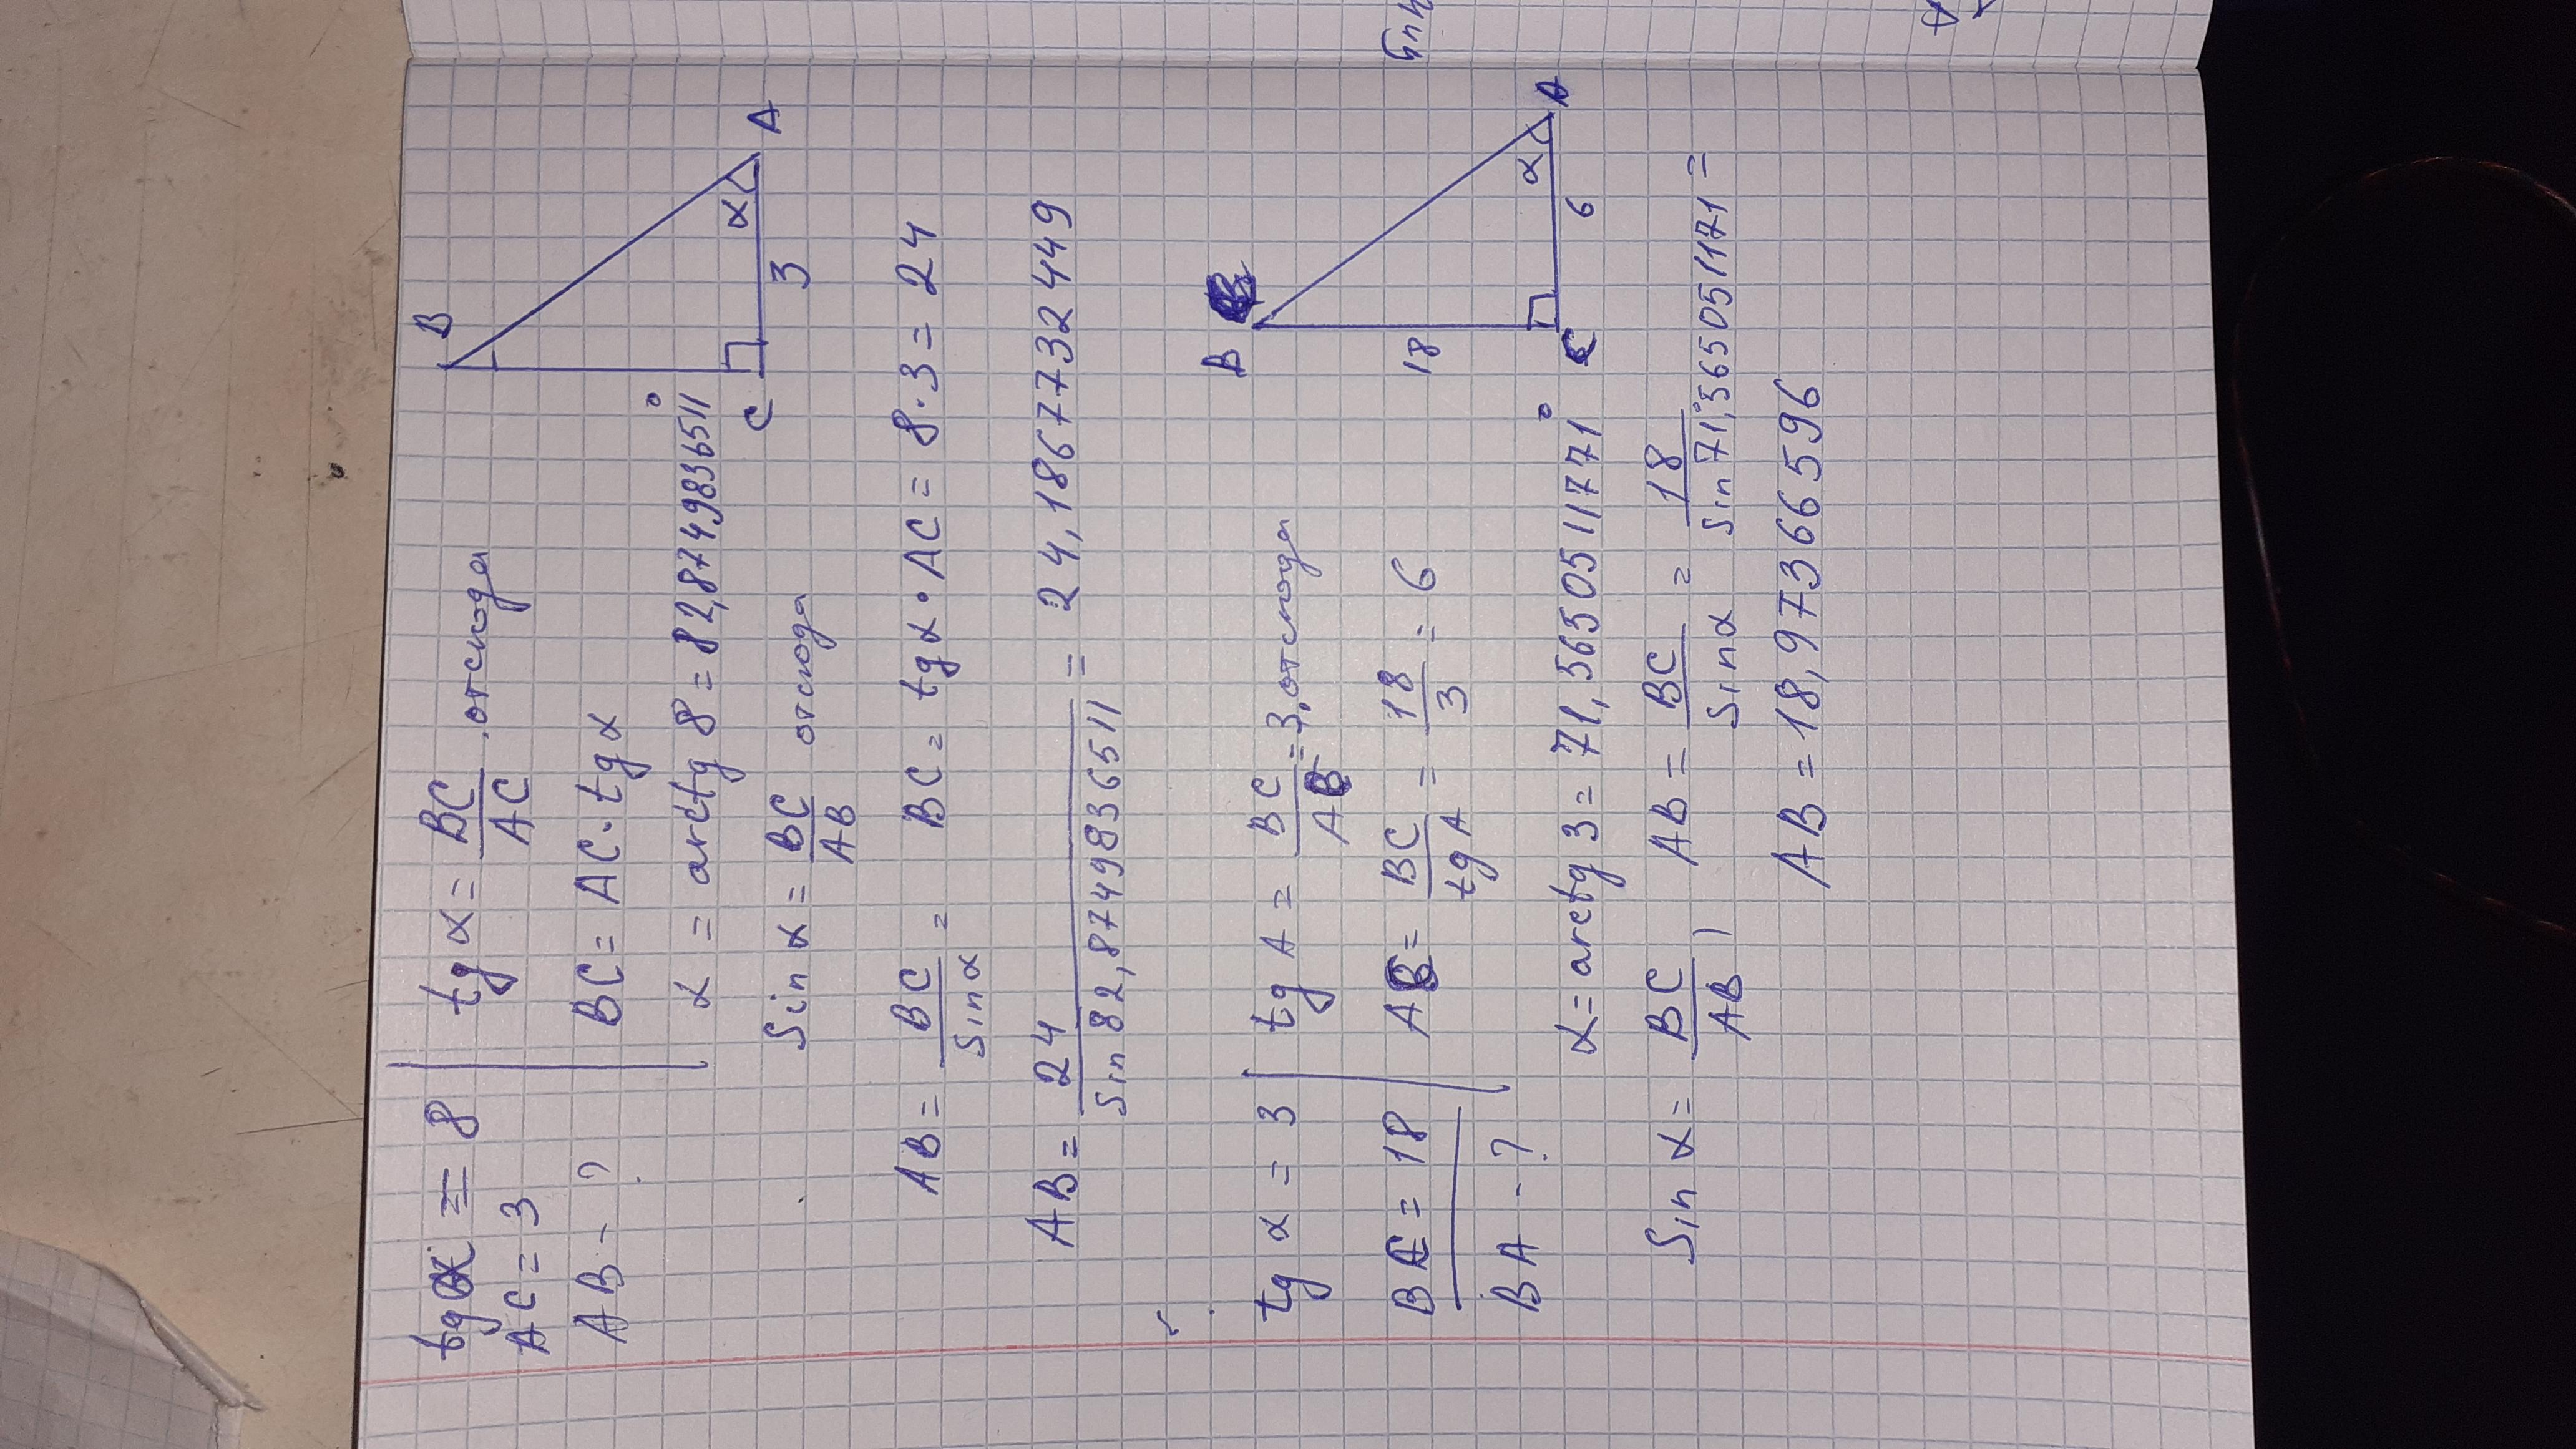 tgα = 8
AC = 3
AB - ?
tg α = BC/AC, отсюда
BC = AC · tg α
α = arctg 8 = 82,8749836511°
Sin α = BC/AB отсюда
AB = BC/Sin α = BC = tg α · AC = 8 · 3 = 24
AB = 24/Sin 82,8749836511 = 24,1867732449
B
α
A
C
3
tg α = 3
BC = 18
BA - ?
tg A = BC/AC = 3, отсюда
AC = BC/tg A = 18/3 = 6
α = arctg 3 = 71,5650511771°
Sin α = BC/AB, AB = BC/Sin α = 18/Sin 71,°5650511771 =
AB = 18,9736659​6
B
18
C
6
α
A